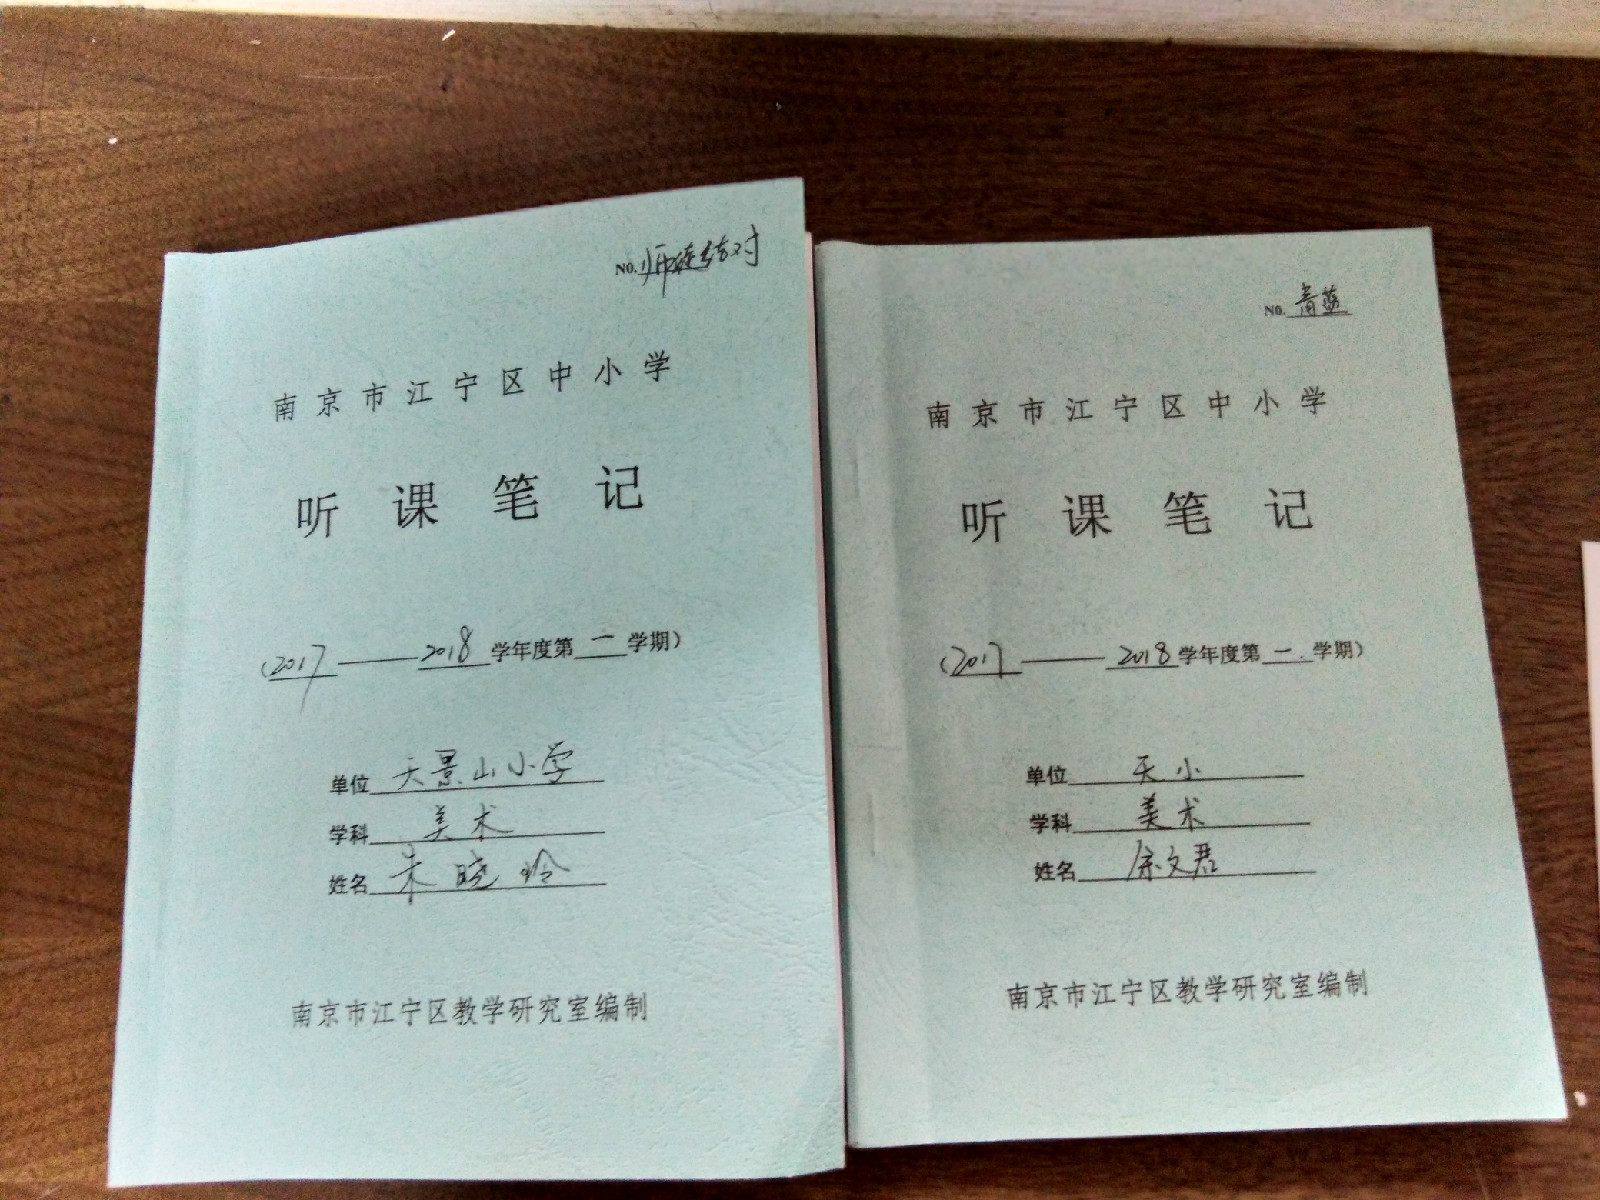 NO.师徒结对
南京市江宁区中小学
听课笔记
(2017——2018学年度第一学期)
单位 天景山小学
学科 美术
姓名 朱晓玲
南京市江宁区教学研究室编制
NO.青蓝
南京市江宁区中小学
听课笔记
(2017——2018学年度第一学期)
单位 天小
学科 美术
姓名 徐文君
南京市江宁区教学研究室编制